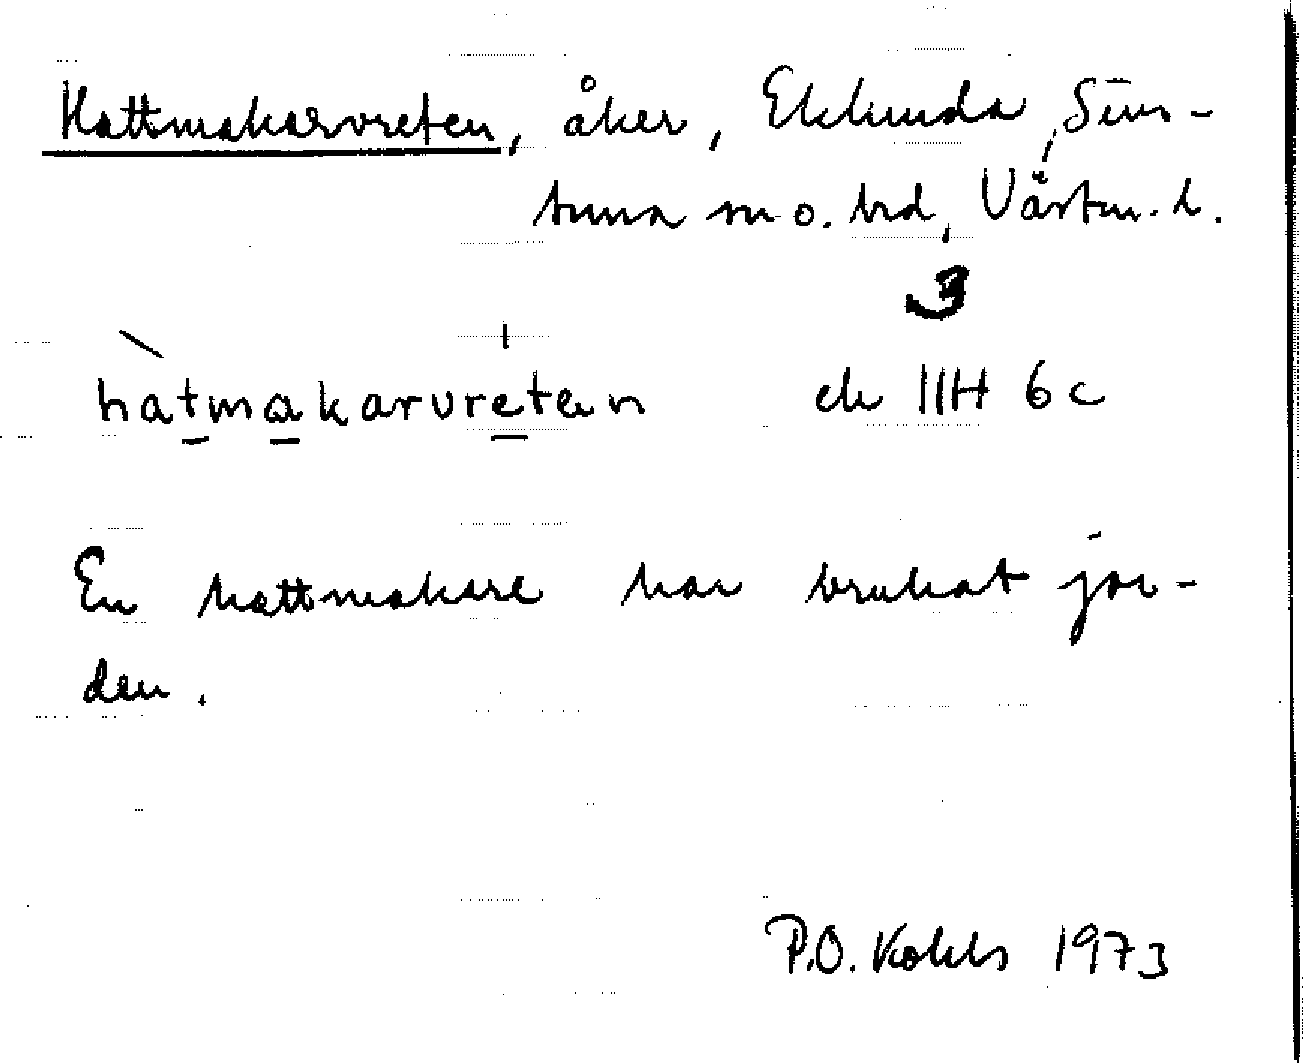 Hattmakarvreten, åker, Eklunda, Simtuna sn o. hrd, Västm. l.
3
hatmakarvretən ek 11H 6c
En hattmakare har brukat jor-
den.
P.O. Kohls 1973